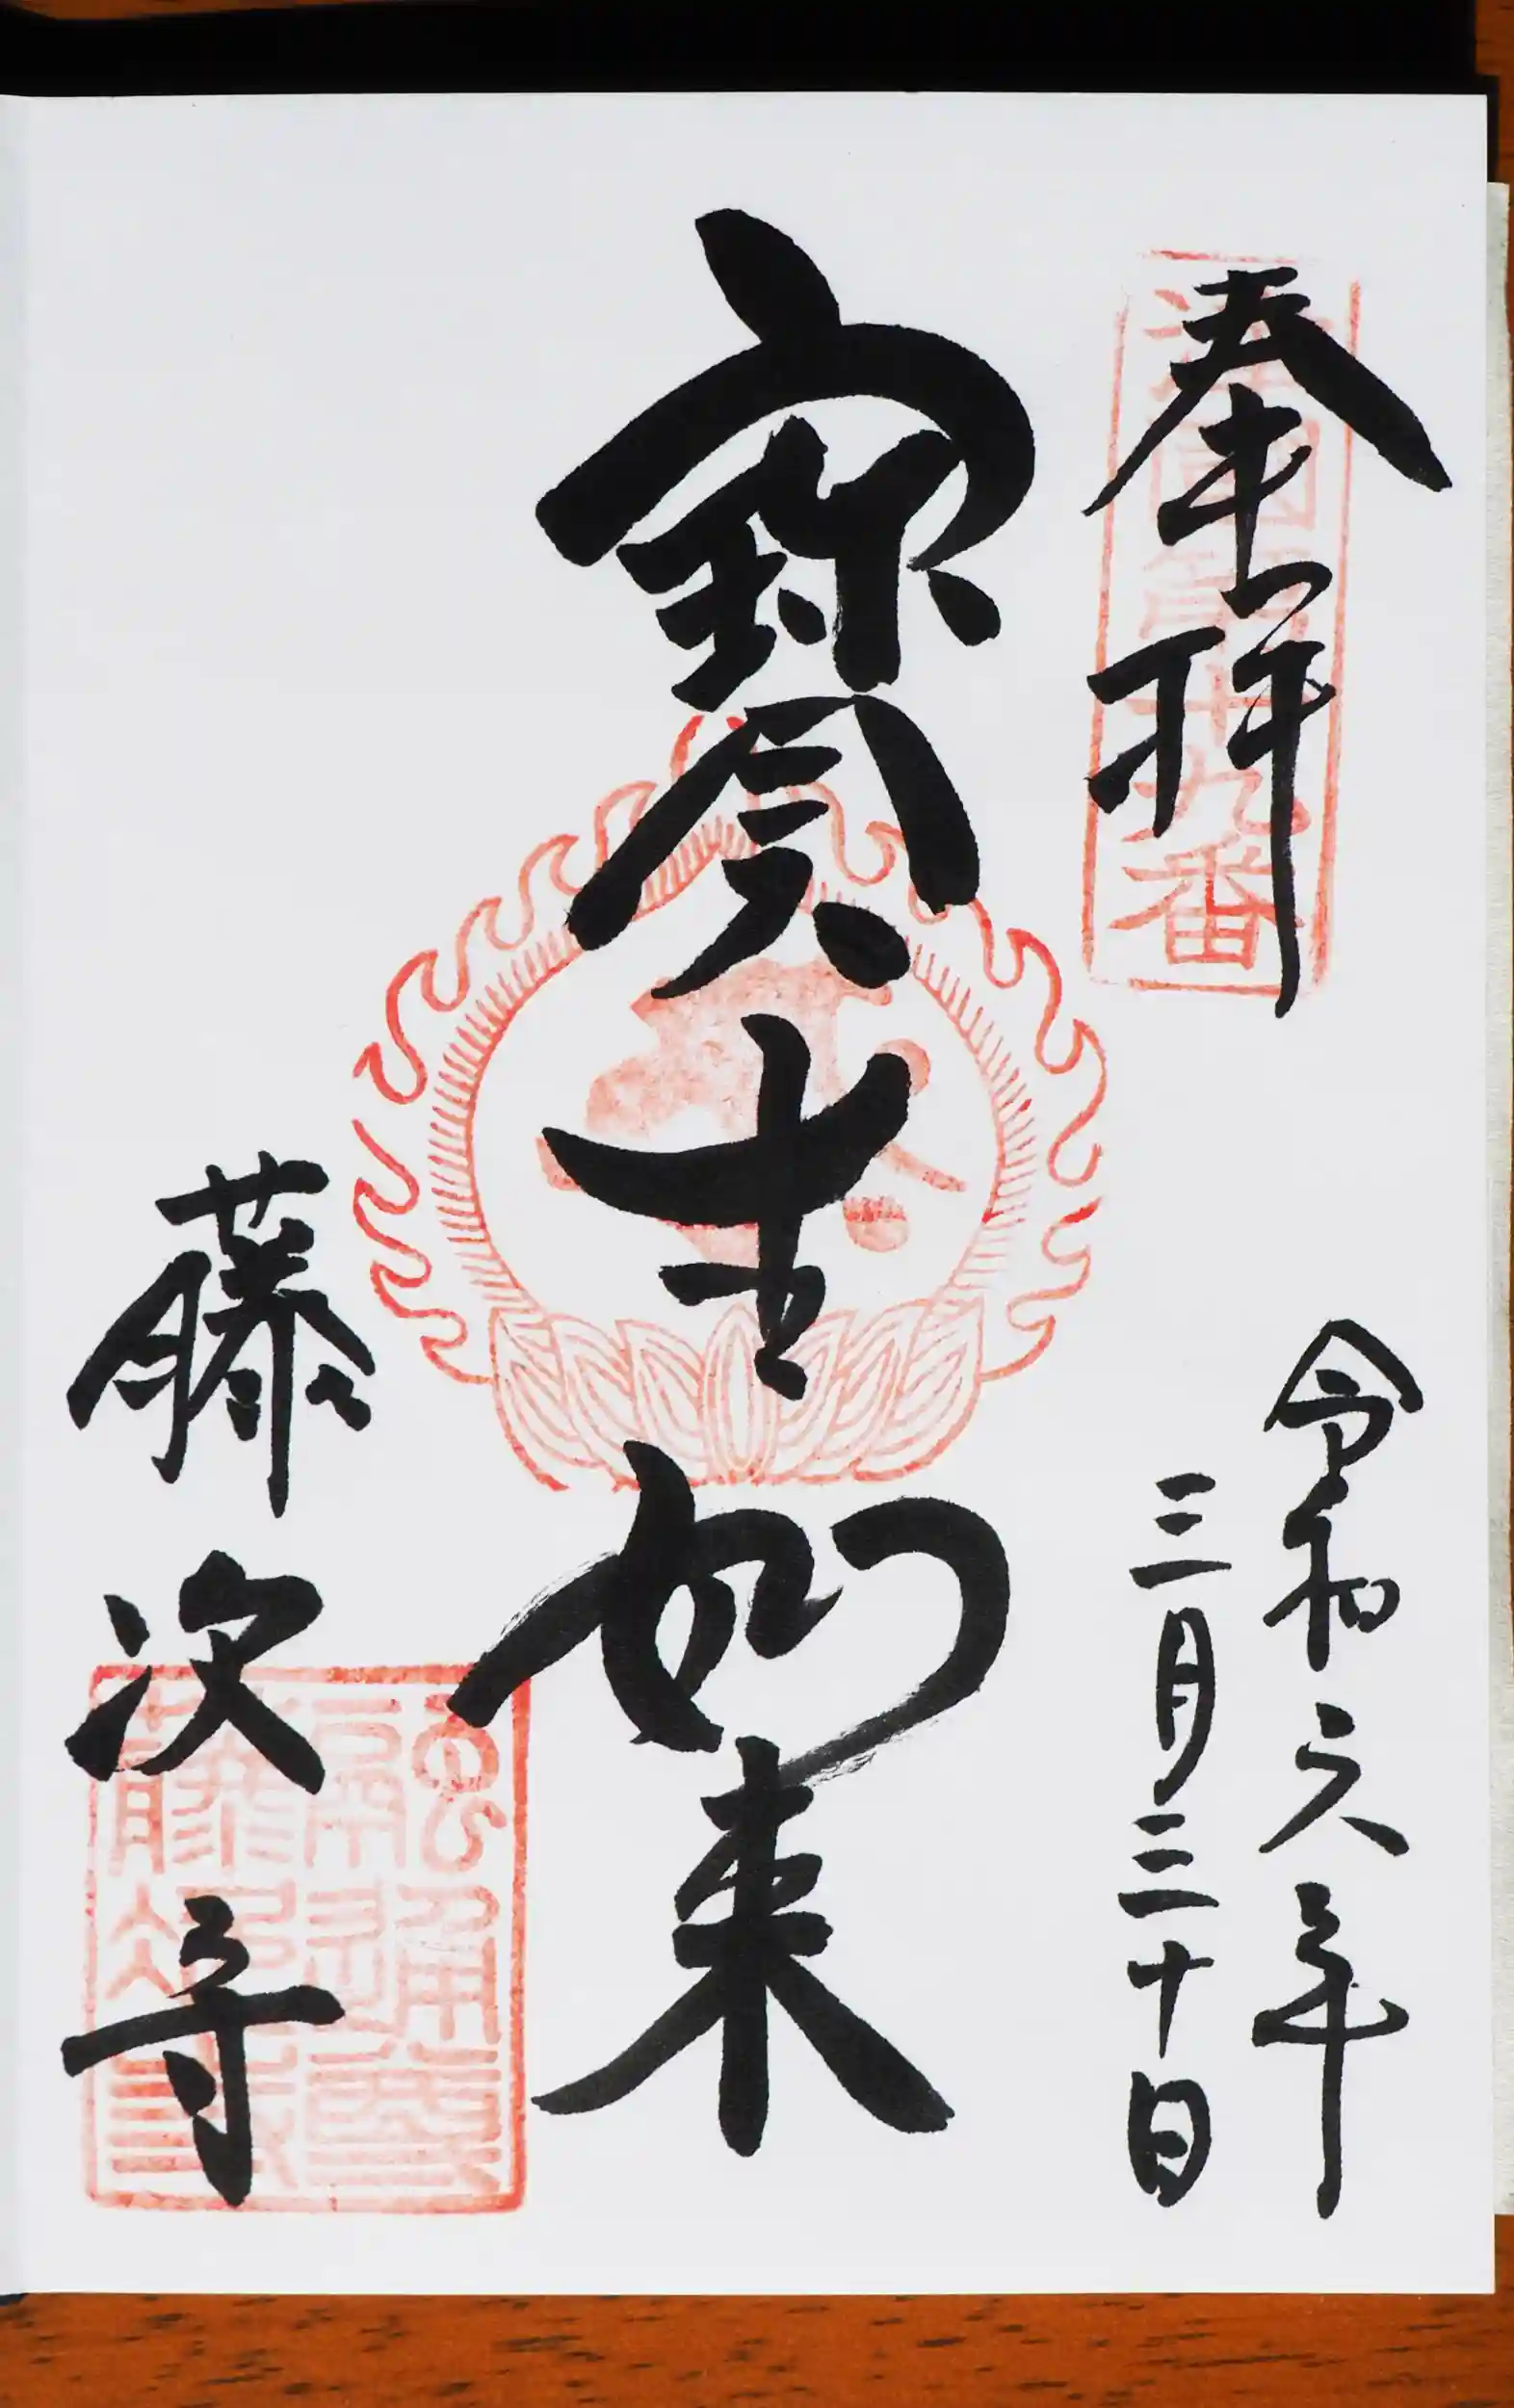 奉拝
令和六年
三月三十日
寳生如来
藤次寺